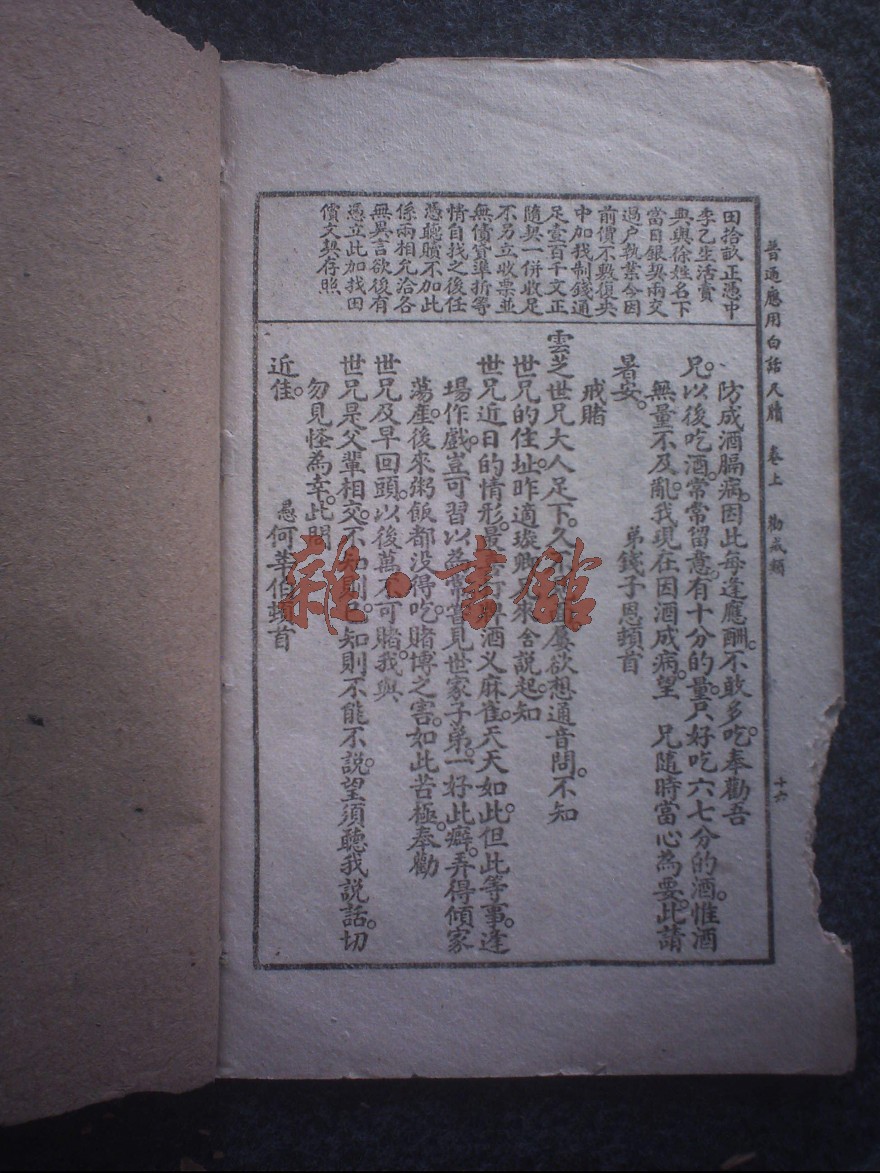 普通應用白話尺牘 卷上 勸戒類 十六
田拾畝正憑中
李乙生活賣
與徐姓名下
當日銀契兩交
過户執業今因
前價不敷復央
中加找制錢通
足壹百千文正
隨契一併收足
不另立收票並
無債貨準折等
情自找之後任
憑聽贖不加此
係兩相允洽各
無異言欲後有
憑立此加找田
價文契存照
防成酒膈病。因此每逢應酬。不敢多吃。奉勸吾
兄。以後吃酒。常常留意。有十分的量。只好吃六七分的酒。惟酒
無量不及亂。我現在因酒成病。望 兄隨時當心為要。此請
暑安。 弟錢子恩頓首
戒賭
雲芝世兄大人足下。久 屢欲想通音問。不知
世兄的住址。昨適 卿 來舍說起。知
世兄近日的情形。最 酒又麻雀。天天如此。但此等事。逢
場作戲。豈可習以為常。嘗見世家子弟。一好此癖。弄得傾家
蕩產。後來粥飯都没得吃。賭博之害。如此苦極。奉勸
世兄及早回頭。以後萬不可賭。我與
世兄是父輩相交。不知則已。知則不能不說。望須聽我說話。切
勿見怪為幸。此問
近佳。 愚何 伯頓首
雜·書館